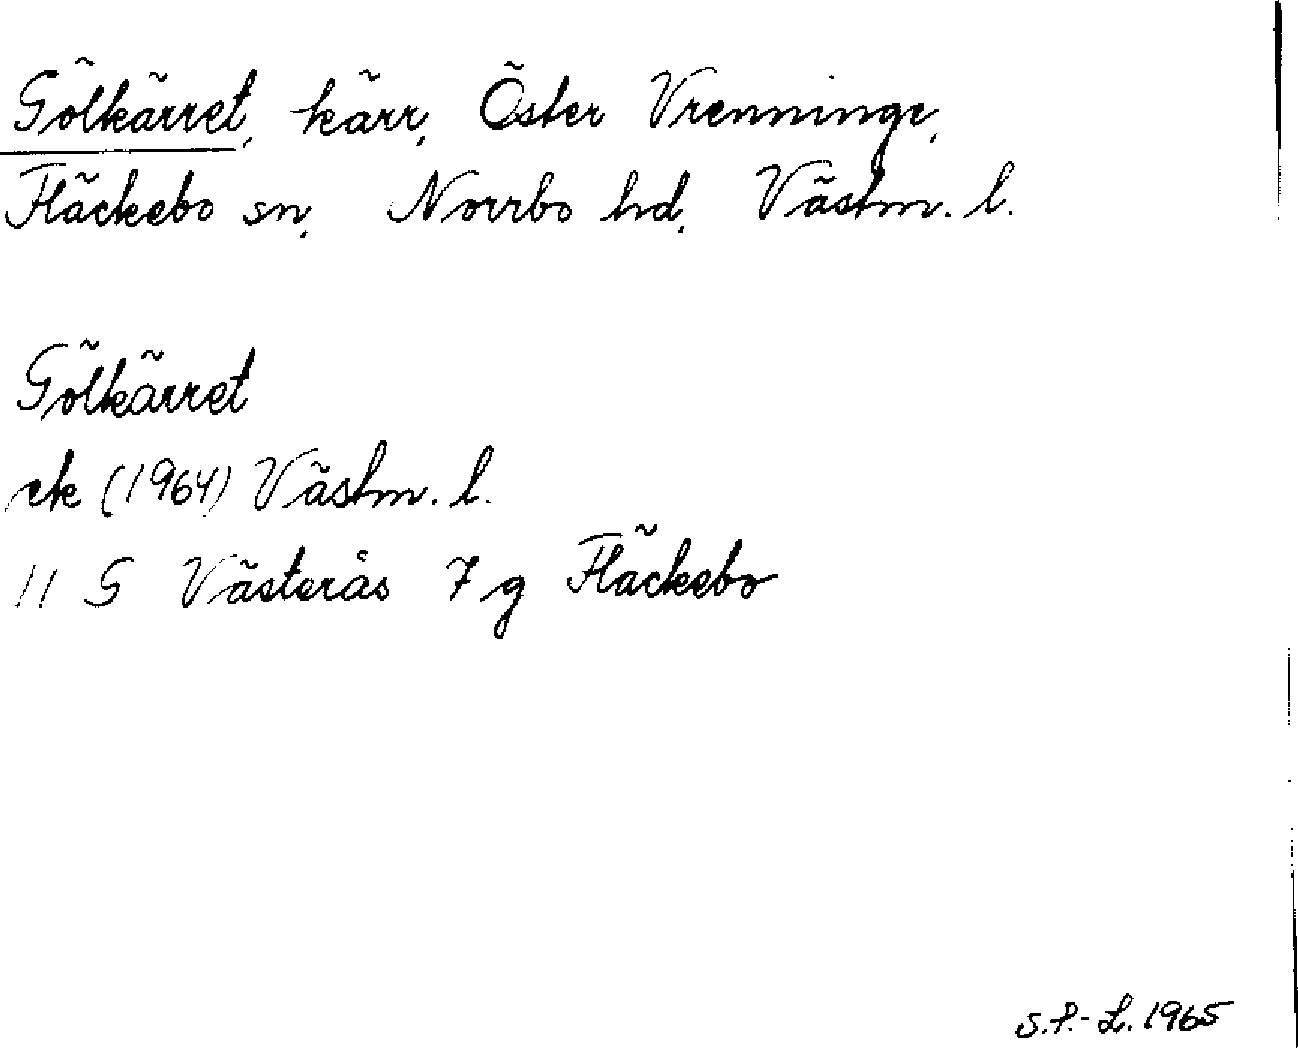 Gölkärret, kärr, Öster Vrenninge,
Fläckebo sn, Norrbo hd, Västm. l.
Gölkärret
ek (1964) Västm. l.
11 G Västerås 7 g Fläckebo
S.P.-L. 1965